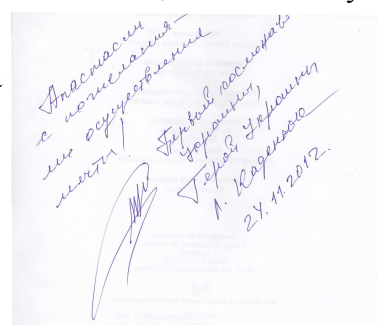 Анастасии
с пожелания-
ми осуществления
мечты!
Первый космонавт
Украины,
Герой Украины
Л. Каденюк
24.11.2012.